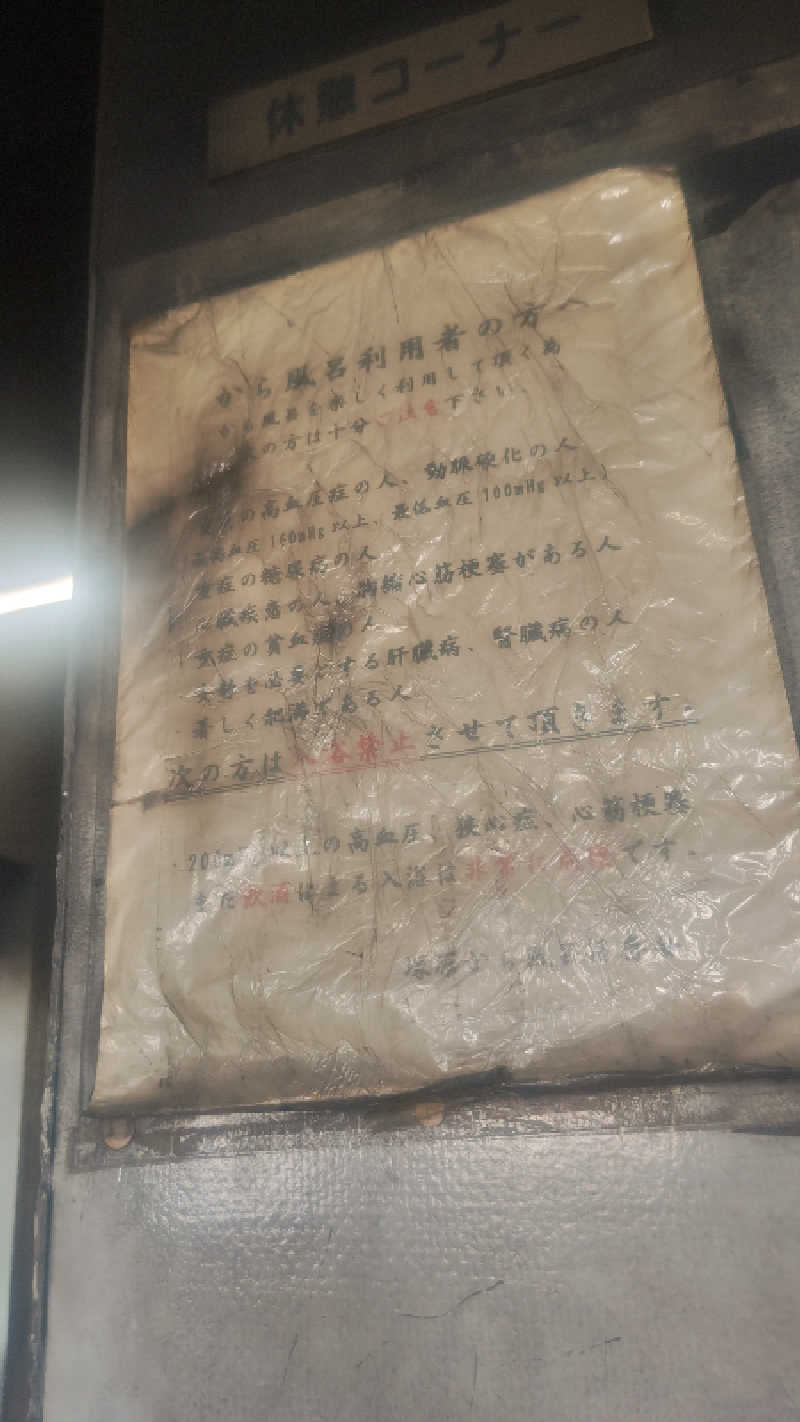 休憩コーナー
から風呂利用者の方へ
から風呂を楽しく利用して頂く為
の方は十分ご注意下さい。
の高血圧症の人、動脈硬化の人
最高血圧160mmHg以上、最低血圧100mmHg以上)
重症の糖尿病の人
心臓疾患の人、狭心筋梗塞がある人
重症の貧血病の人
安静を必要とする肝臓病、腎臓病の人
著しく肥満である人
次の方は入浴禁止させて頂きます。
200mmHg以上の高血圧、狭心症、心筋梗塞
また飲酒による入浴は非常に危険です。
から風呂